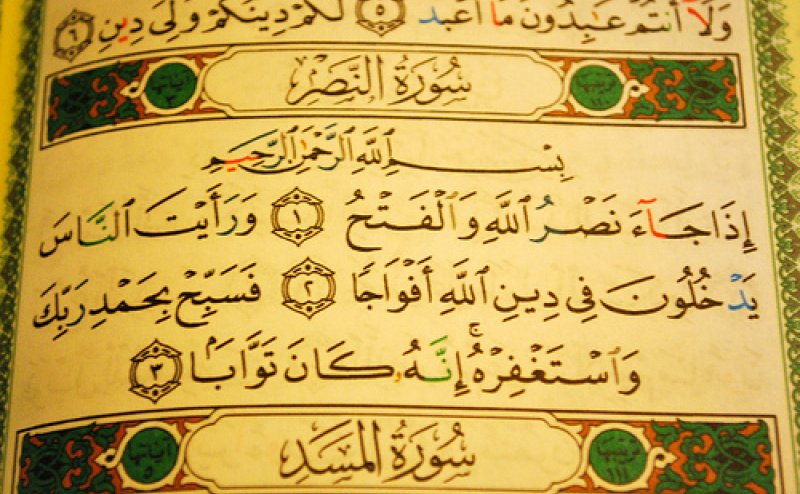 وَلَآ أَنتُمْ عَٰبِدُونَ مَآ أَعْبُدُ ٥ لَكُمْ دِينُكُمْ وَلِىَ دِينِ ٦
سُورَةُ النَّصْرِ
بِسْمِ ٱللَّهِ ٱلرَّحْمَٰنِ ٱلرَّحِيمِ
إِذَا جَآءَ نَصْرُ ٱللَّهِ وَٱلْفَتْحُ ١ وَرَأَيْتَ ٱلنَّاسَ
يَدْخُلُونَ فِى دِينِ ٱللَّهِ أَفْوَاجًا ٢ فَسَبِّحْ بِحَمْدِ رَبِّكَ
وَٱسْتَغْفِرْهُ ۚ إِنَّهُۥ كَانَ تَوَّابًۢا ٣
آياتها ٥ سُورَةُ المَسَدِ ترتيبها ١١١